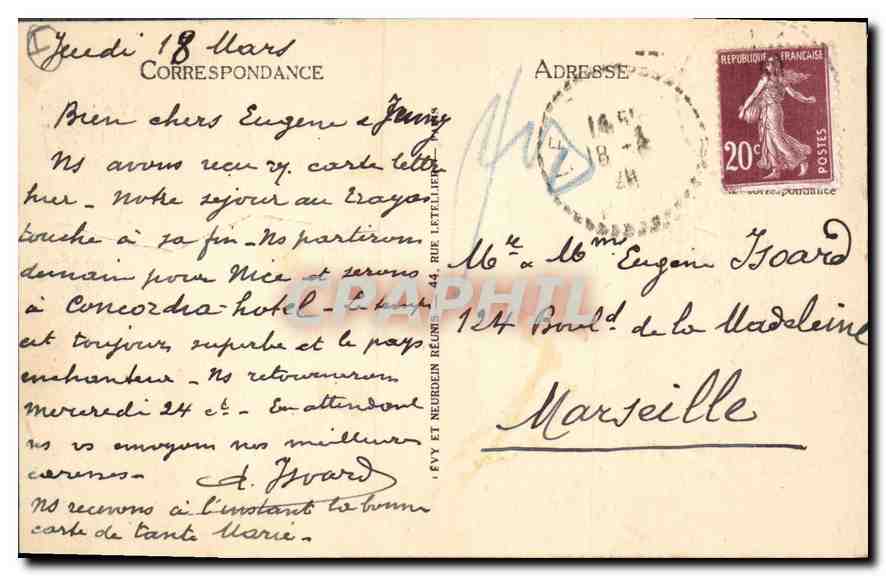 Jeudi 18 Mars
CORRESPONDANCE
Bien chers Eugène & Jenny
Ns avons reçu vs. carte lettre
hier - Notre séjour au Trayas
touche à sa fin - Ns partirons
demain pour Nice et serons
à Concordia-hotel - le temps
est toujours superbe et le pays
enchanteur - Ns retournerons
mercredi 24 ct - En attendant
ns vs envoyons nos meilleures
caresses -
E. Isoard
Ns recevons à l'instant la bonne
carte de tante Marie -
LÉVY ET NEURDEIN RÉUNIS - 44, RUE LETELLIER - PARIS
ADRESSE
REPUBLIQUE FRANÇAISE
20c
POSTES
correspondance
18 -
Mr & Mme Eugène Isoard
124 Bould de la Madeleine
Marseille
CPAPHIL